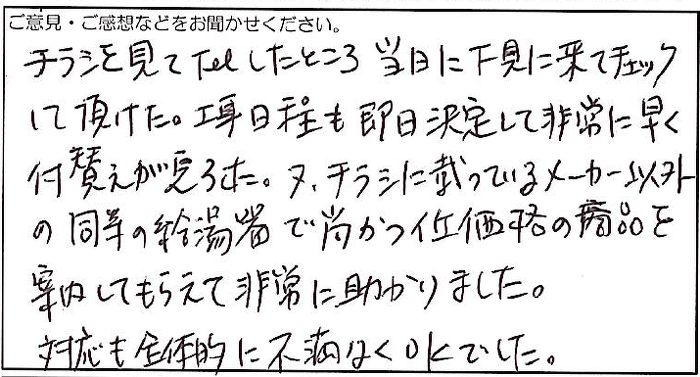 ご意見・ご感想などをお聞かせください。
チラシを見てTelしたところ 当日に下見に来てチェック
して頂けた。工事日程も即日決定して非常に早く
付替えが完了した。又、チラシに載っているメーカー以外
の同等の給湯器で尚かつ低価格の商品を
案内してもらえて非常に助かりました。
対応も全体的に不満なくOKでした。